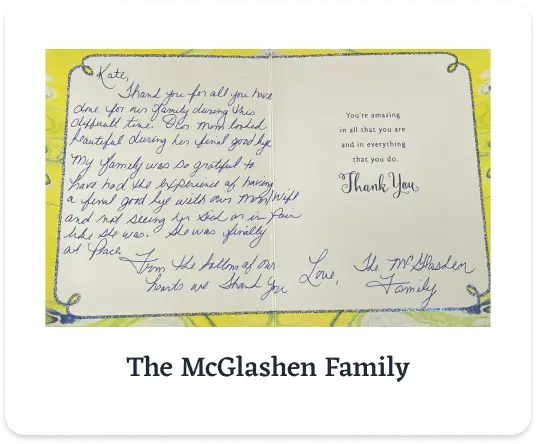 Kate,
Thank you for all you have
done for our family during this
difficult time. Our mom looked
beautiful during her final good bye.
My family was so grateful to
have had the experience of having
a final good bye with our mom/wife
and not seeing her sick or in pain
like she was. She was finally
at Peace.
From the bottom of our
hearts we Thank You
You're amazing
in all that you are
and in everything
that you do.
Thank You
Love, The McGlashen
Family
The McGlashen Family